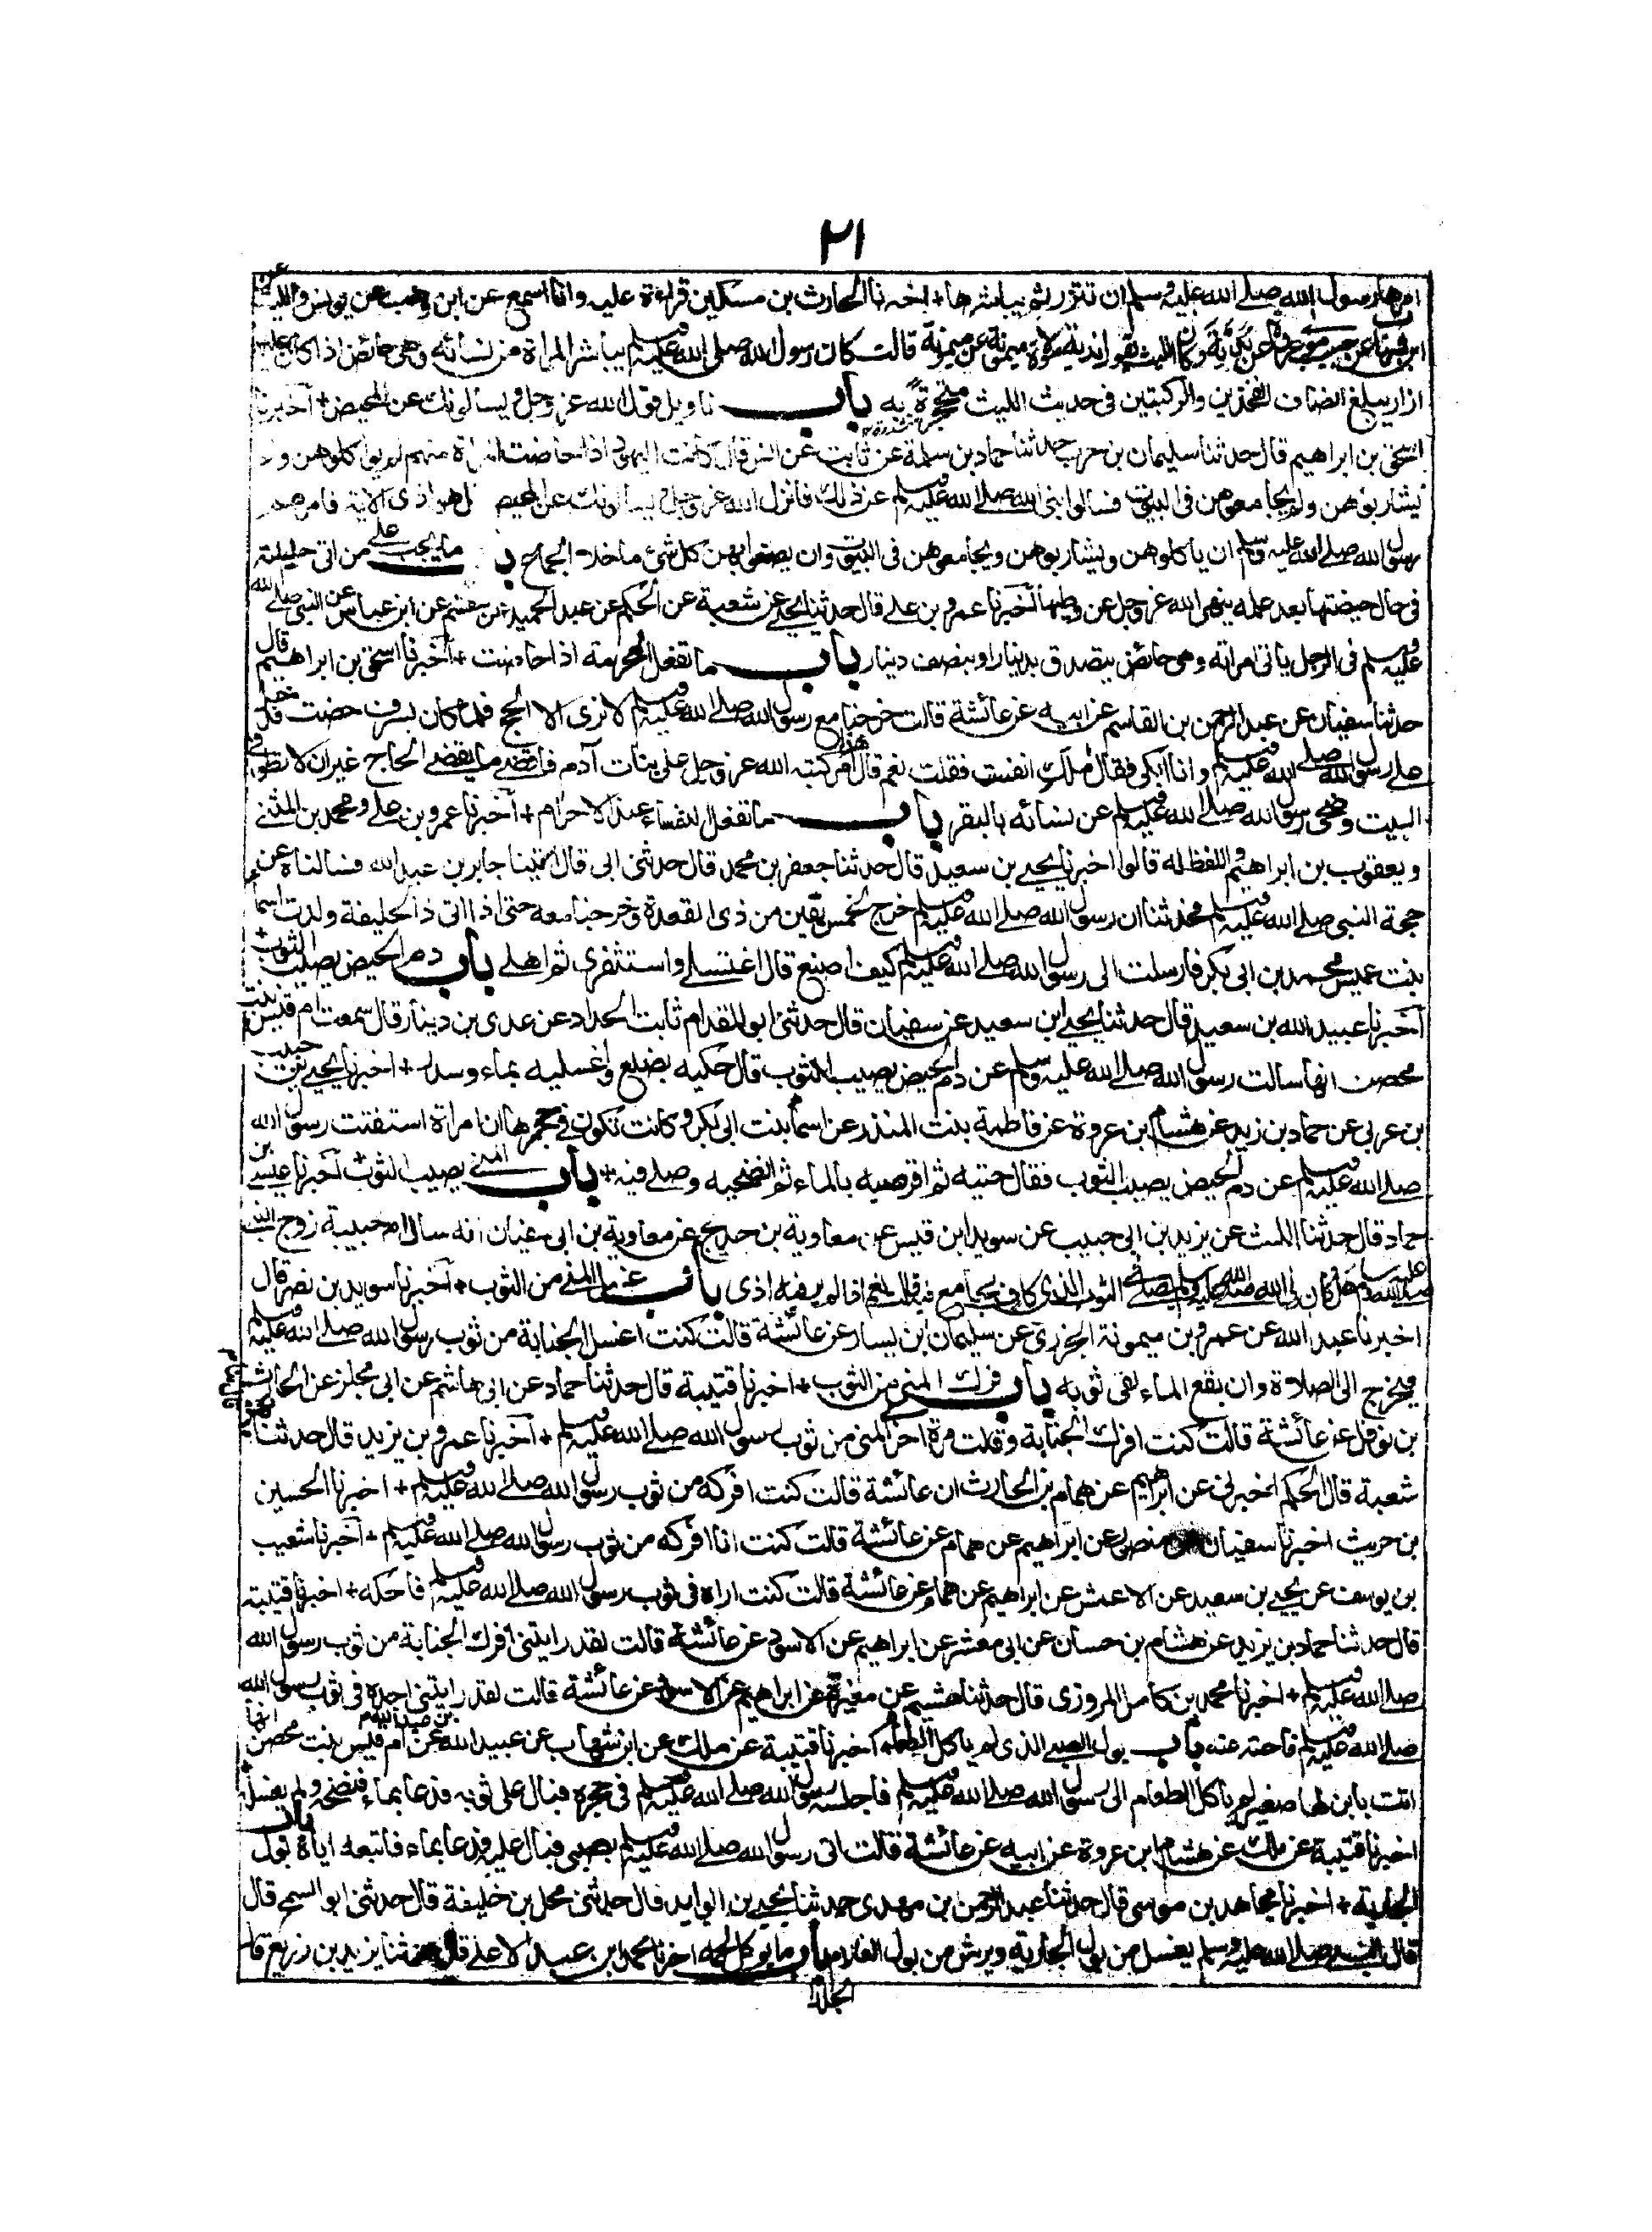 ٢١
امرها رسول الله صلے الله عليه وسلم ان تتزر ثم يباشرها + اخبرنا الحارث بن مسكين قراءة عليه وانا اسمع عن ابن وهب عن يونس والليث عن
ابن شهاب عن حبيب مولى عروة عن بدية وكان الليث يقول ندبة مولاة ميمونة عن ميمونة قالت كان رسول الله صلى الله عليه وسلم يباشر المراة من نسائه وهى حائض اذا كان عليها
ازار يبلغ انصاف الفخذين والركبتين فى حديث الليث محتجزة به باب تاويل قول الله عز وجل ويسالونك عن المحيض + اخبرنا
اسحٰق بن ابراهيم قال حدثنا سليمان بن حرب حدثنا حماد بن سلمة عن ثابت عن انس قال كانت اليهود اذا حاضت المراة منهم لم يواكلوهن ولا
يشاربوهن ولم يجامعوهن فى البيوت فسالوا نبى الله صلے الله عليه وسلم عن ذلك فانزل الله عز وجل يسالونك عن المحيض قل هو اذى الاية فامرهم
رسول الله صلے الله عليه وسلم ان ياكلوهن ويشاربوهن ويجامعوهن فى البيوت وان يصنعوا بهن كل شئ ما خلا الجماع ب ما يجب علے من اتى حليلته
فى حال حيضتها بعد علمه بنهى الله عز وجل عن وطيها اخبرنا عمرو بن علے قال حدثنا يحيے عن شعبة عن الحكم عن عبد الحميد عن مقسم عن ابن عباس عن النبى صلے الله
عليه وسلم فى الرجل ياتى امراته وهى حائض يتصدق بدينار او بنصف دينار باب ما تفعل المحرمة اذا حاضت + اخبرنا اسحٰق بن ابراهيم قال
حدثنا سفيان عن عبد الرحمن بن القاسم عن ابيه عن عائشة قالت خرجنا مع رسول الله صلے الله عليه وسلم لا نرى الا الحج فلما كان بسرف حضت فدخل
علے رسول الله صلے الله عليه وسلم وانا ابكى فقال مالك انفست فقلت نعم قال هذا امر كتبه الله عز وجل على بنات آدم فاقضے ما يقضے الحاج غير ان لا تطوفى
البيت وضحى رسول الله صلے الله عليه وسلم عن نسائه بالبقر باب ما تفعل النفساء عند الاحرام + اخبرنا عمرو بن علے ومحمد بن المثنے
ويعقوب بن ابراهيم واللفظ له قالوا اخبرنا يحيے بن سعيد قال حدثنا جعفر بن محمد قال حدثنى ابى قال اتينا جابر بن عبد الله فسالناه عن
حجة النبى صلے الله عليه وسلم فحدثنا ان رسول الله صلے الله عليه وسلم خرج لخمس بقين من ذى القعدة وخرجنا معه حتى اذا اتى ذا الحليفة ولدت اسما
بنت عميس محمد بن ابى بكر فارسلت الى رسول الله صلے الله عليه وسلم كيف اصنع قال اغتسلے واستثفرى ثم اهلے باب دم الحيض يصيب الثوب +
اخبرنا عبيد الله بن سعيد قال حدثنا يحيے ابن سعيد عن سفيان قال حدثنى ابو المقدام ثابت الحداد عن عدى بن دينار قال سمعت ام قيس بنت
محصن انها سالت رسول الله صلے الله عليه وسلم عن دم الحيض يصيب الثوب قال حكيه بضلع واغسليه بماء وسدر + اخبرنا يحيے بن حبيب
بن عربى عن حماد بن زيد عن هشام بن عروة عن فاطمة بنت المنذر عن اسما بنت ابى بكر وكانت تكون فى حجرها ان امراة استفتت رسول الله
صلے الله عليه وسلم عن دم الحيض يصيب الثوب فقال حتيه ثم اقرصيه بالماء ثم انضحيه وصلے فيه + باب المنے يصيب الثوب اخبرنا عيسے بن
حماد قال حدثنا الليث عن يزيد بن ابى حبيب عن سويد ابن قيس عن معاوية بن حديج عن معاوية بن ابى سفيان انه سال ام حبيبة زوج النبى
صلے الله عليه وسلم هل كان رسول الله صلے الله عليه وسلم يصلے فى الثوب الذى كان يجامع فيه قالت نعم اذا لم ير فيه اذى باب غسل المنے من الثوب + اخبرنا سويد بن نصر قال
اخبرنا عبد الله عن عمرو بن ميمونة الجزرى عن سليمان ابن يسار عن عائشة قالت كنت اغسل الجنابة من ثوب رسول الله صلے الله عليه وسلم
فيخرج الى الصلاة وان بقع الماء لفى ثوبه باب فرك المنى من الثوب + اخبرنا قتيبة قال حدثنا حماد عن ابى هاشم عن ابى مجلز عن الحارث
بن نوفل عن عائشة قالت كنت افرك الجنابة وقالت مرة اخرى المنى من ثوب رسول الله صلے الله عليه وسلم + اخبرنا عمرو بن يزيد قال حدثنا بهز
شعبة قال الحكم اخبرنى عن ابراهيم عن همام بن الحارث ان عائشة قالت كنت افركه من ثوب رسول الله صلے الله عليه وسلم + اخبرنا الحسين
بن حريث اخبرنا سفيان عن منصور عن ابراهيم عن همام عن عائشة قالت كنت انا افركه من ثوب رسول الله صلے الله عليه وسلم + اخبرنا شعيب
بن يوسف عن يحيے بن سعيد عن الاعمش عن ابراهيم عن همام عن عائشة قالت كنت اراه فى ثوب رسول الله صلے الله عليه وسلم فاحكه + اخبرنا قتيبة
قال حدثنا حماد بن يزيد عن هشام بن حسان عن ابى معشر عن ابراهيم عن الاسود عن عائشة قالت لقد رايتنى افرك الجنابة من ثوب رسول الله
صلے الله عليه وسلم + اخبرنا محمد بن كامل المروزى قال حدثنا هشيم عن مغيرة عن ابراهيم عن الاسود عن عائشة قالت لقد رايتنى اجده فى ثوب رسول الله
صلے الله عليه وسلم فاحته عنه باب بول الصبے الذى لم ياكل الطعام اخبرنا قتيبة عن ملك عن ابن شهاب عن عبيد الله بن عبد الله عن ام قيس بنت محصن انها
اتت بابن لها صغير لم ياكل الطعام الى رسول الله صلے الله عليه وسلم فاجلسه رسول الله صلے الله عليه وسلم فى حجره فبال على ثوبه فدعا بماء فنضحه ولم يغسله
اخبرنا قتيبة عن ملك عن هشام ابن عروة عن ابيه عن عائشة قالت اتى رسول الله صلے الله عليه وسلم بصبى فبال عليه فدعا بماء فاتبعه اياه باب بول
الجارية + اخبرنا مجاهد بن موسى قال حدثنا عبد الرحمن ابن مهدى حدثنا يحيے بن الوليد قال حدثنى محل بن خليفة قال حدثنى ابو السمح قال
قال النبى صلے الله عليه وسلم يغسل من بول الجارية ويرش من بول الغلام باب بول ما يوكل لحمه اخبرنا محمد ابن عبد الاعلے قال حدثنا يزيد بن زريع قال